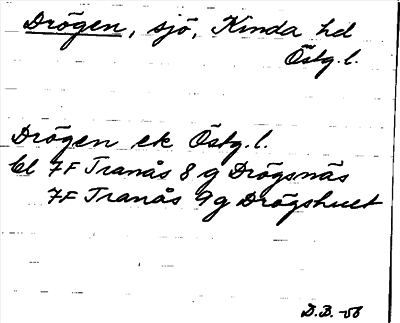 Drögen, sjö, Kinda hd
Östg. l.
Drögen ek Östg. l.
bl 7F Tranås 8 g Drögsnäs
7F Tranås 9g Drögshult
D.B. -56